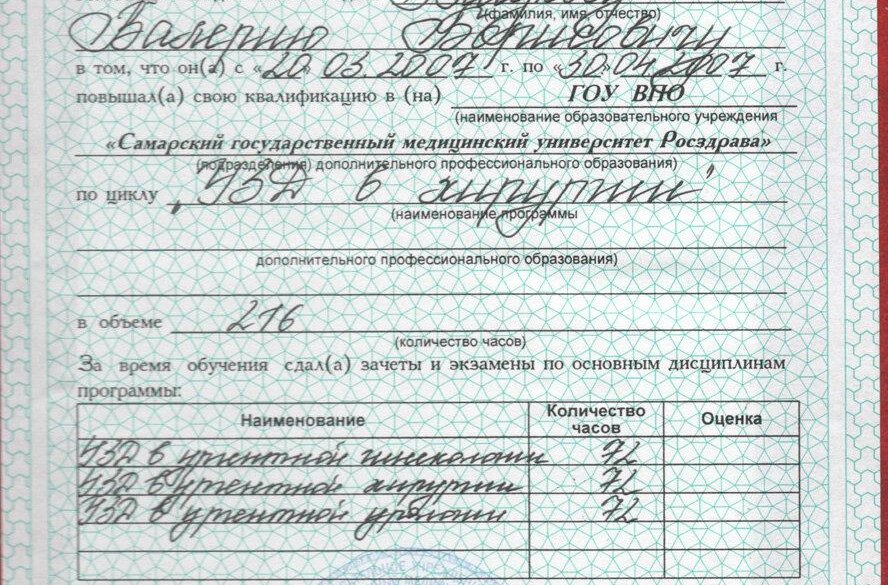 (фамилия, имя, отчество)
Валерию Борисовичу
в том, что он(а) с «20» 03. 2007 г. по «30» 04 2007 г.
повышал(а) свою квалификацию в (на) ГОУ ВПО
(наименование образовательного учреждения
«Самарский государственный медицинский университет Росздрава»
(подразделения) дополнительного профессионального образования)
по циклу „УЗД в хирургии"
(наименование программы
дополнительного профессионального образования)
в объеме 216
(количество часов)
За время обучения сдал(а) зачеты и экзамены по основным дисциплинам
программы:
Наименование Количество часов Оценка
УЗД в ургентной гинекологии 72
УЗД в ургентной хирургии 72
УЗД в ургентной урологии 72